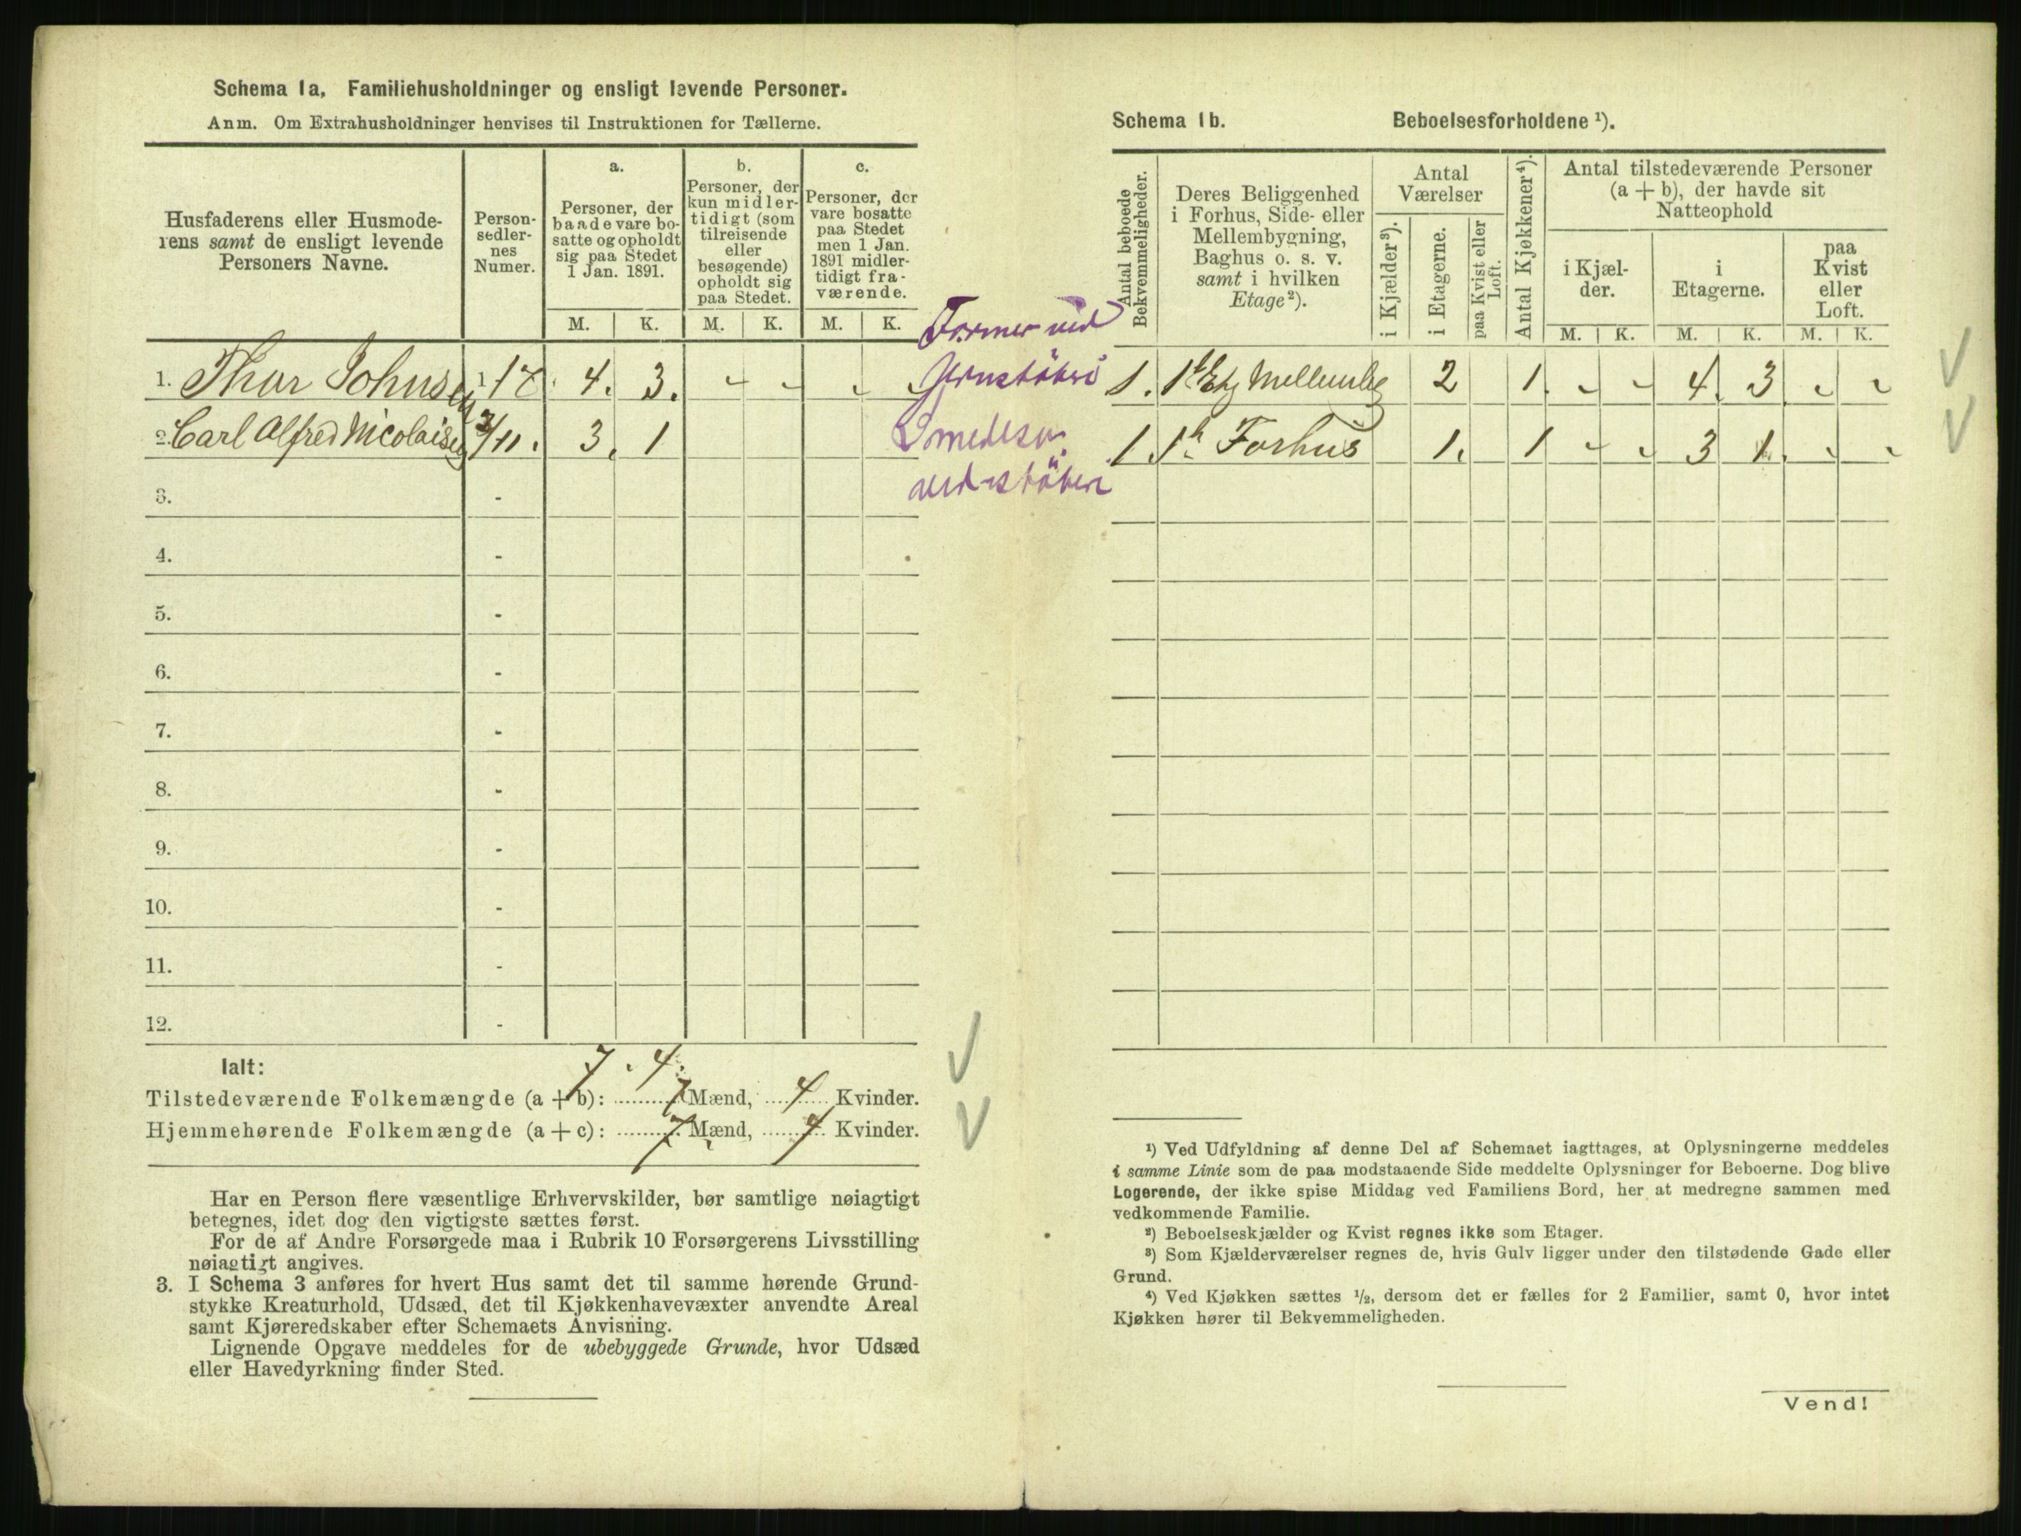 Schema 1a. Familiehusholdninger og ensligt levende Personer.
Anm. Om Extrahusholdninger henvises til Instruktionen for Tællerne.
Husfaderens eller Husmode-
rens samt de ensligt levende
Personers Navne.
Person-
sedler-
nes
Numer.
a.
Personer, der
baade vare bo-
satte og opholdt
sig paa Stedet
1 Jan. 1891.
b.
Personer, der
kun midler-
tidigt (som
tilreisende
eller
besøgende)
opholdt sig
paa Stedet.
c.
Personer, der
vare bosatte
paa Stedet
men 1 Jan.
1891 midler-
tidigt fra-
værende.
M. K. M. K. M. K.
1. Thor Johnsen 1 - 7 4. 3. Former ved
Jernstöberi
2. Carl Alfred Nicolaisen /11. 3. 1 Smedesv.
ved støberi
3. -
4. -
5. -
6. -
7. -
8. -
9. -
10. -
11. -
12. -
Ialt: 7. 4.
Tilstedeværende Folkemængde (a + b): 7 Mænd, 4 Kvinder.
Hjemmehørende Folkemængde (a + c): 7 Mænd, 4 Kvinder.
Har en Person flere væsentlige Erhvervskilder, bør samtlige nøiagtigt
betegnes, idet dog den vigtigste sættes først.
For de af Andre Forsørgede maa i Rubrik 10 Forsørgerens Livsstilling
nøiagtigt angives.
3. I Schema 3 anføres for hvert Hus samt det til samme hørende Grund-
stykke Kreaturhold, Udsæd, det til Kjøkkenhavevæxter anvendte Areal
samt Kjøreredskaber efter Schemaets Anvisning.
Lignende Opgave meddeles for de ubebyggede Grunde, hvor Udsæd
eller Havedyrkning finder Sted.
Schema 1b. Beboelsesforholdene ¹).
Antal beboede
Bekvemmeligheder.
Deres Beliggenhed
i Forhus, Side- eller
Mellembygning,
Baghus o. s. v.
samt i hvilken
Etage ²).
Antal
Værelser
i Kjælder ³).
i Etagerne.
paa Kvist eller
Loft.
Antal Kjøkkener ⁴).
Antal tilstedeværende Personer
(a + b), der havde sit
Natteophold
i Kjæl-
der.
i
Etagerne.
paa
Kvist
eller
Loft.
M. K. M. K. M. K.
1. 1ste Etg Mellembg 2 1. 4. 3.
1. 1ste Forhus 1. 1 3 1.
¹) Ved Udfyldning af denne Del af Schemaet iagttages, at Oplysningerne meddeles
i samme Linie som de paa modstaaende Side meddelte Oplysninger for Beboerne. Dog blive
Logerende, der ikke spise Middag ved Familiens Bord, her at medregne sammen med
vedkommende Familie.
²) Beboelseskjælder og Kvist regnes ikke som Etager.
³) Som Kjælderværelser regnes de, hvis Gulv ligger under den tilstødende Gade eller
Grund.
⁴) Ved Kjøkken sættes ½, dersom det er fælles for 2 Familier, samt 0, hvor intet
Kjøkken hører til Bekvemmeligheden.
Vend!